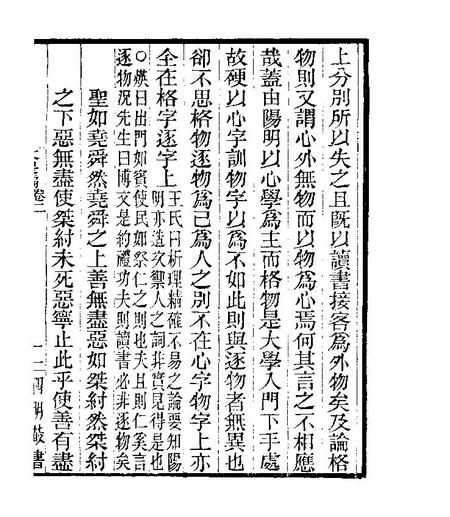 上分別所以失之且既以讀書接客為外物矣及論格
物則又謂心外無物而以物為心焉何其言之不相應
哉蓋由陽明以心學為主而格物是大學入門下手處
故硬以心字訓物字以為不如此則與逐物者無異也
卻不思格物逐物為已為人之別不在心字物字上亦
全在格字逐字上
王氏曰析理精確不易之論要知陽
明亦造次禦人之詞非實見得是也
○煐曰出門如賓使民如祭仁之則也夫且則仁奚言
逐物況先生曰博文是約禮功夫則讀書必非逐物矣
聖如堯舜然堯舜之上善無盡惡如桀紂然桀紂
之下惡無盡使桀紂未死惡寧止此乎使善有盡
四明叢書